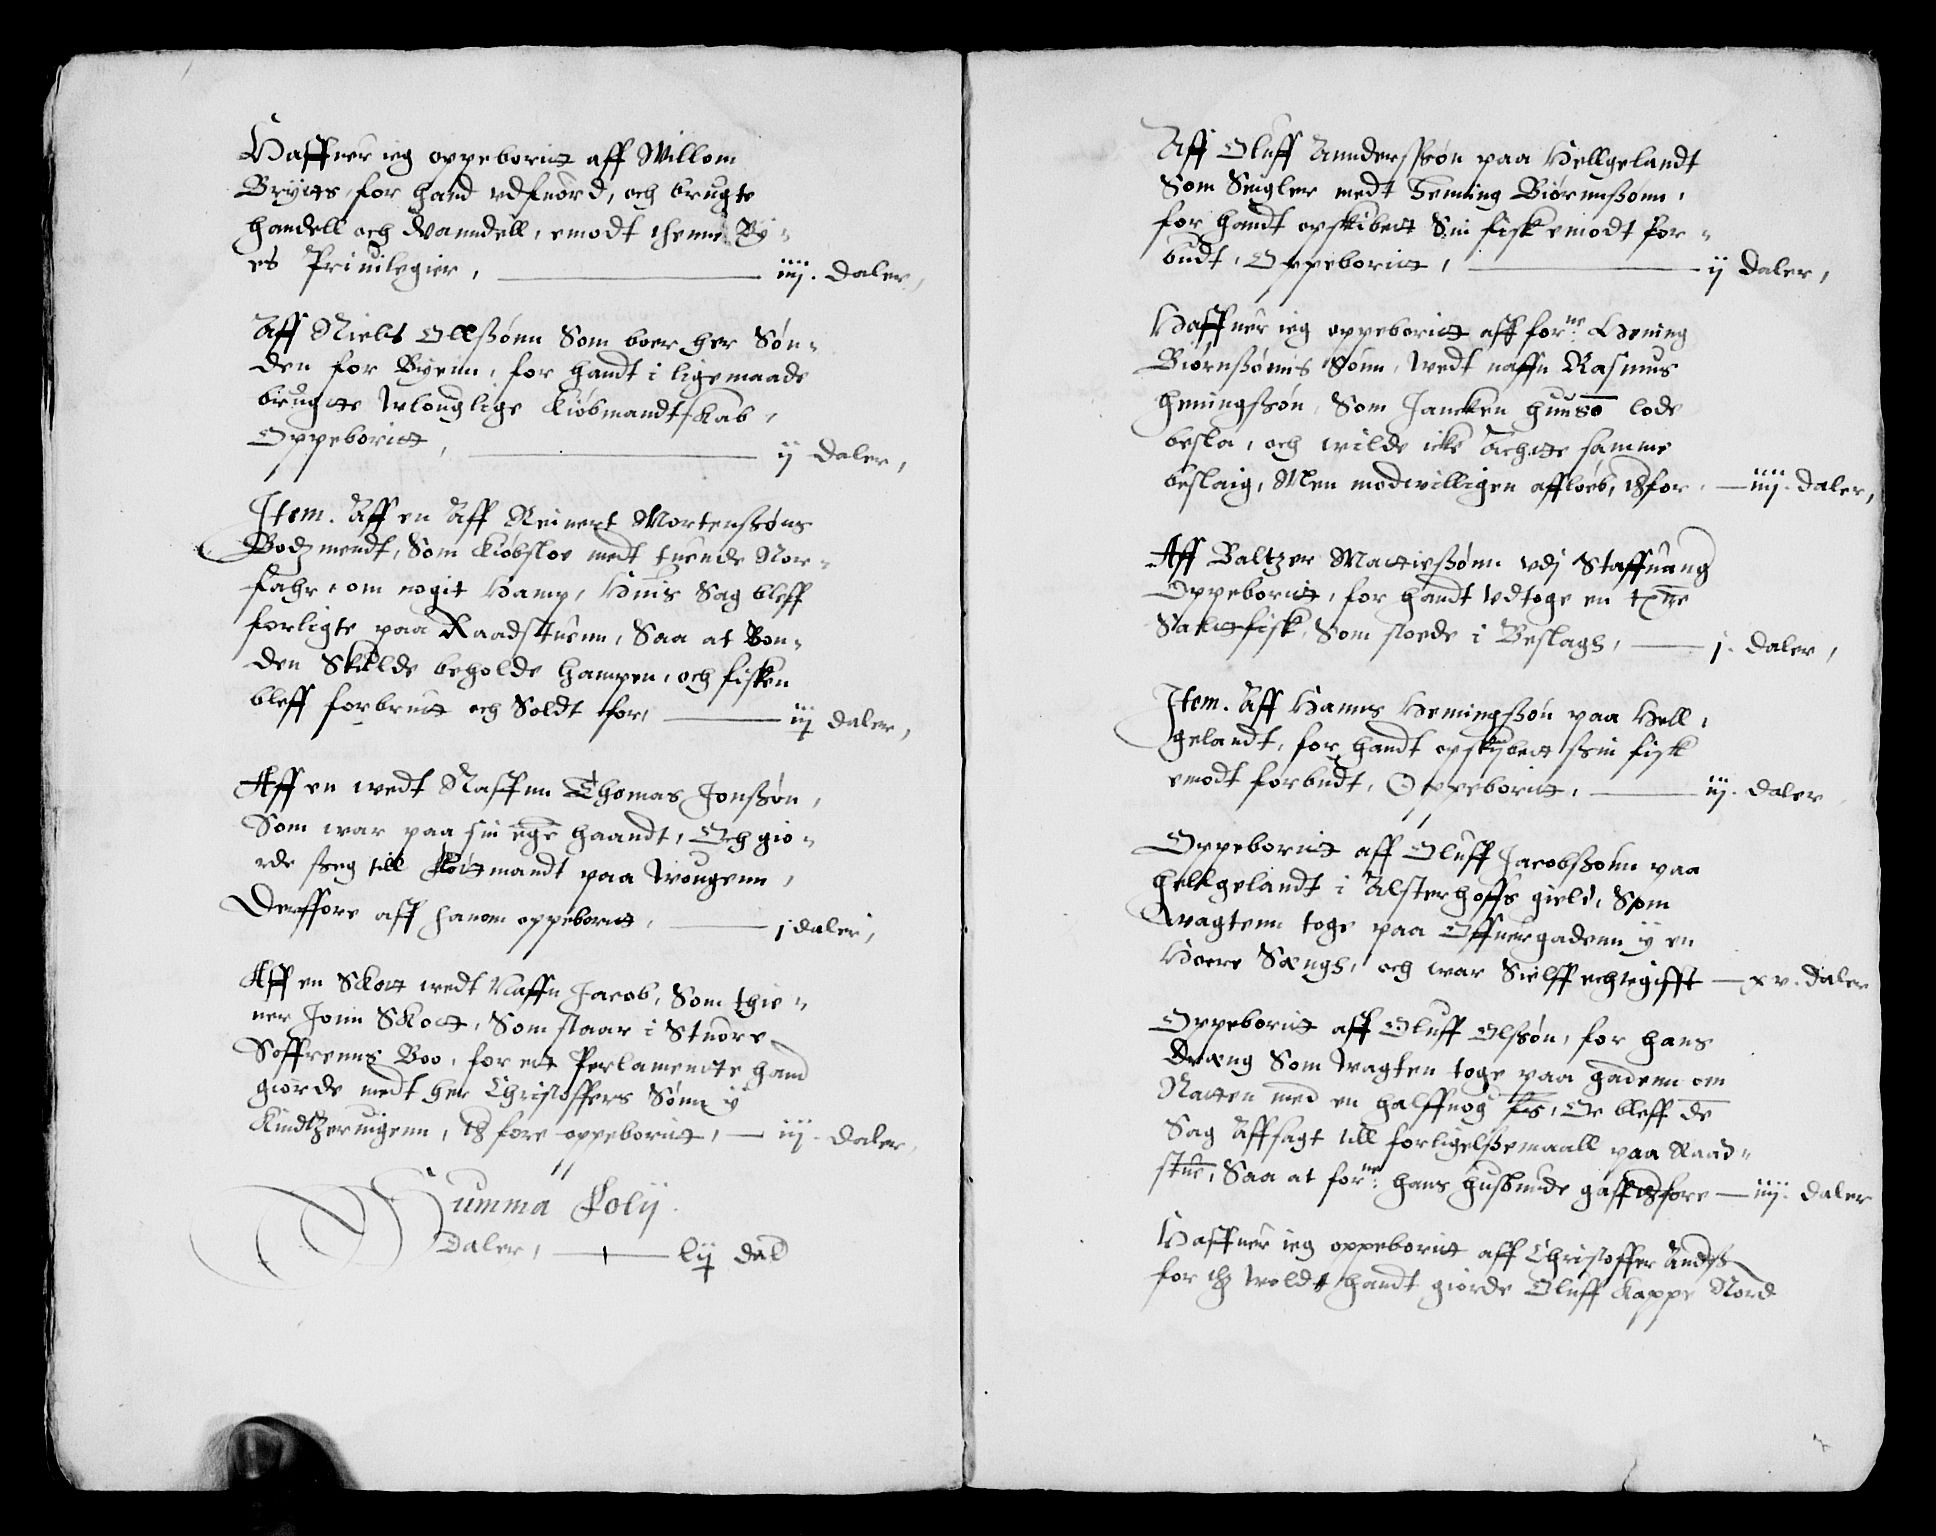 Haffuer ieg oppeborit aff Willom
Brytts, for hand vdfuord, och brugte
handell och Wanndell, emodt thenne By-
es Priuilegier, iiij. Daler,
Aff Niels Ollssønn Som boer her Søn-
den for Byenn, for handt i ligemaade
brugtte Wlouglige Kiøbmandtskab,
Oppeboritt, ij Daler,
Item. Aff en Aff Reinert Mortenssøns
Bodzmendt, Som Kiøbsloe medt tuende Nor-
fahr, om nogit Hamp, Huis Sag bleff
forligte paa Raadstuenn, Saa at Bon-
den Skulde beholde hampen, och fisken
bleff forbrutt och Soldt for, iij Daler,
Aff en wedt Naffnn Thomas Jonssøn,
Som war paa sin egē haandt, Och gio-
rde sseg till Kiøttmandt paa Wougenn,
Derffore aff hanom oppeboritt, j daler,
Aff en Skott wedt Naffn Jacob, Som thie-
ner Jonn Skott, Som staar i Stuore
Soffrenns Boo, for ett Perlamentte hand
giorde medt her Christoffers Sønn y
Kindtzeruigenn, ther fore oppeboritt, iij. Daler,
Summa Folij
Daler, lij dal
Aff Oluff Anndersssøn paa Hellgelandt
Som Seigler medt Heming Biørnssonn,
for handt opskibett Sin fisk emodt for-
budt, Oppeboritt, ij Daler,
Haffuer ieg oppeboritt aff forne: Heming
Biørnssønns Sønn, Wedt naffn Rasmus
Hemingssøn, Som Jancken lode
besla, och wilde icke achtte samme
beslaig, Men modwilligen affloeb, therfor iiij. daler,
Aff Baltzer Mattiessønn vdj Staffuang
Oppeboritt, for handt vdtoge en tnē
Salttfisk, Som stoede i Beslagh, j. daler,
Item. Aff Hanns Hemingssøn paa Hell,
gelandt, for handt opskybett ssin fisk
emodt forbudt, Oppeboritt, iij. daler
Oppeboritt aff Oluff Jacobssønn paa
Helligelandt i Alsterhoffs gield, Som
Wagtenn toge paa Offuergadenn y en
Hoere Sængh, och war Sielff echtegifft xv. daler
Oppeboritt aff Oluff Olssøn, for hans
Dræng Som Wagten toge paa gadenn om
Natten med en halffuog fis, Oc bleff dē
Sag Affsagt till forligelssemaall paa Raad-
stuē, Saa at forne: hans husbunde gaff therfore iiij. daler
Haffuer ieg oppeboritt aff Christoffer Anderss
for ther Wold handt giorde Oluff Kappe Nord